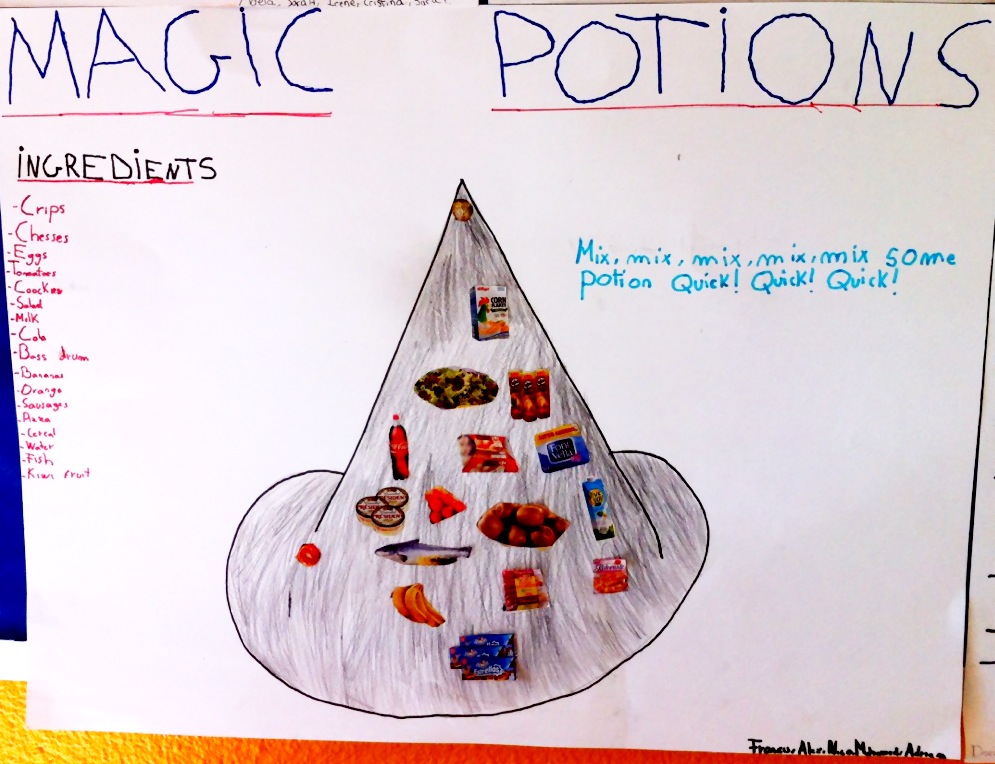 Abela, Sarah, Irene, Cristina, Sara
MAGIC POTIONS
INGREDIENTS
- Crips
- Chesses
- Eggs
- Tomatoes
- Coockies
- Salad
- Milk
- Cola
- Bass drum
- Bananas
- Orange
- Sausages
- Pizza
- Cereal
- Water
- Fish
- Kiwi fruit
Mix, mix, mix, mix, mix some
potion Quick! Quick! Quick!
CORN
FLAKES
Font
Vella
PRESIDENT
PRESIDENT
Estrellas